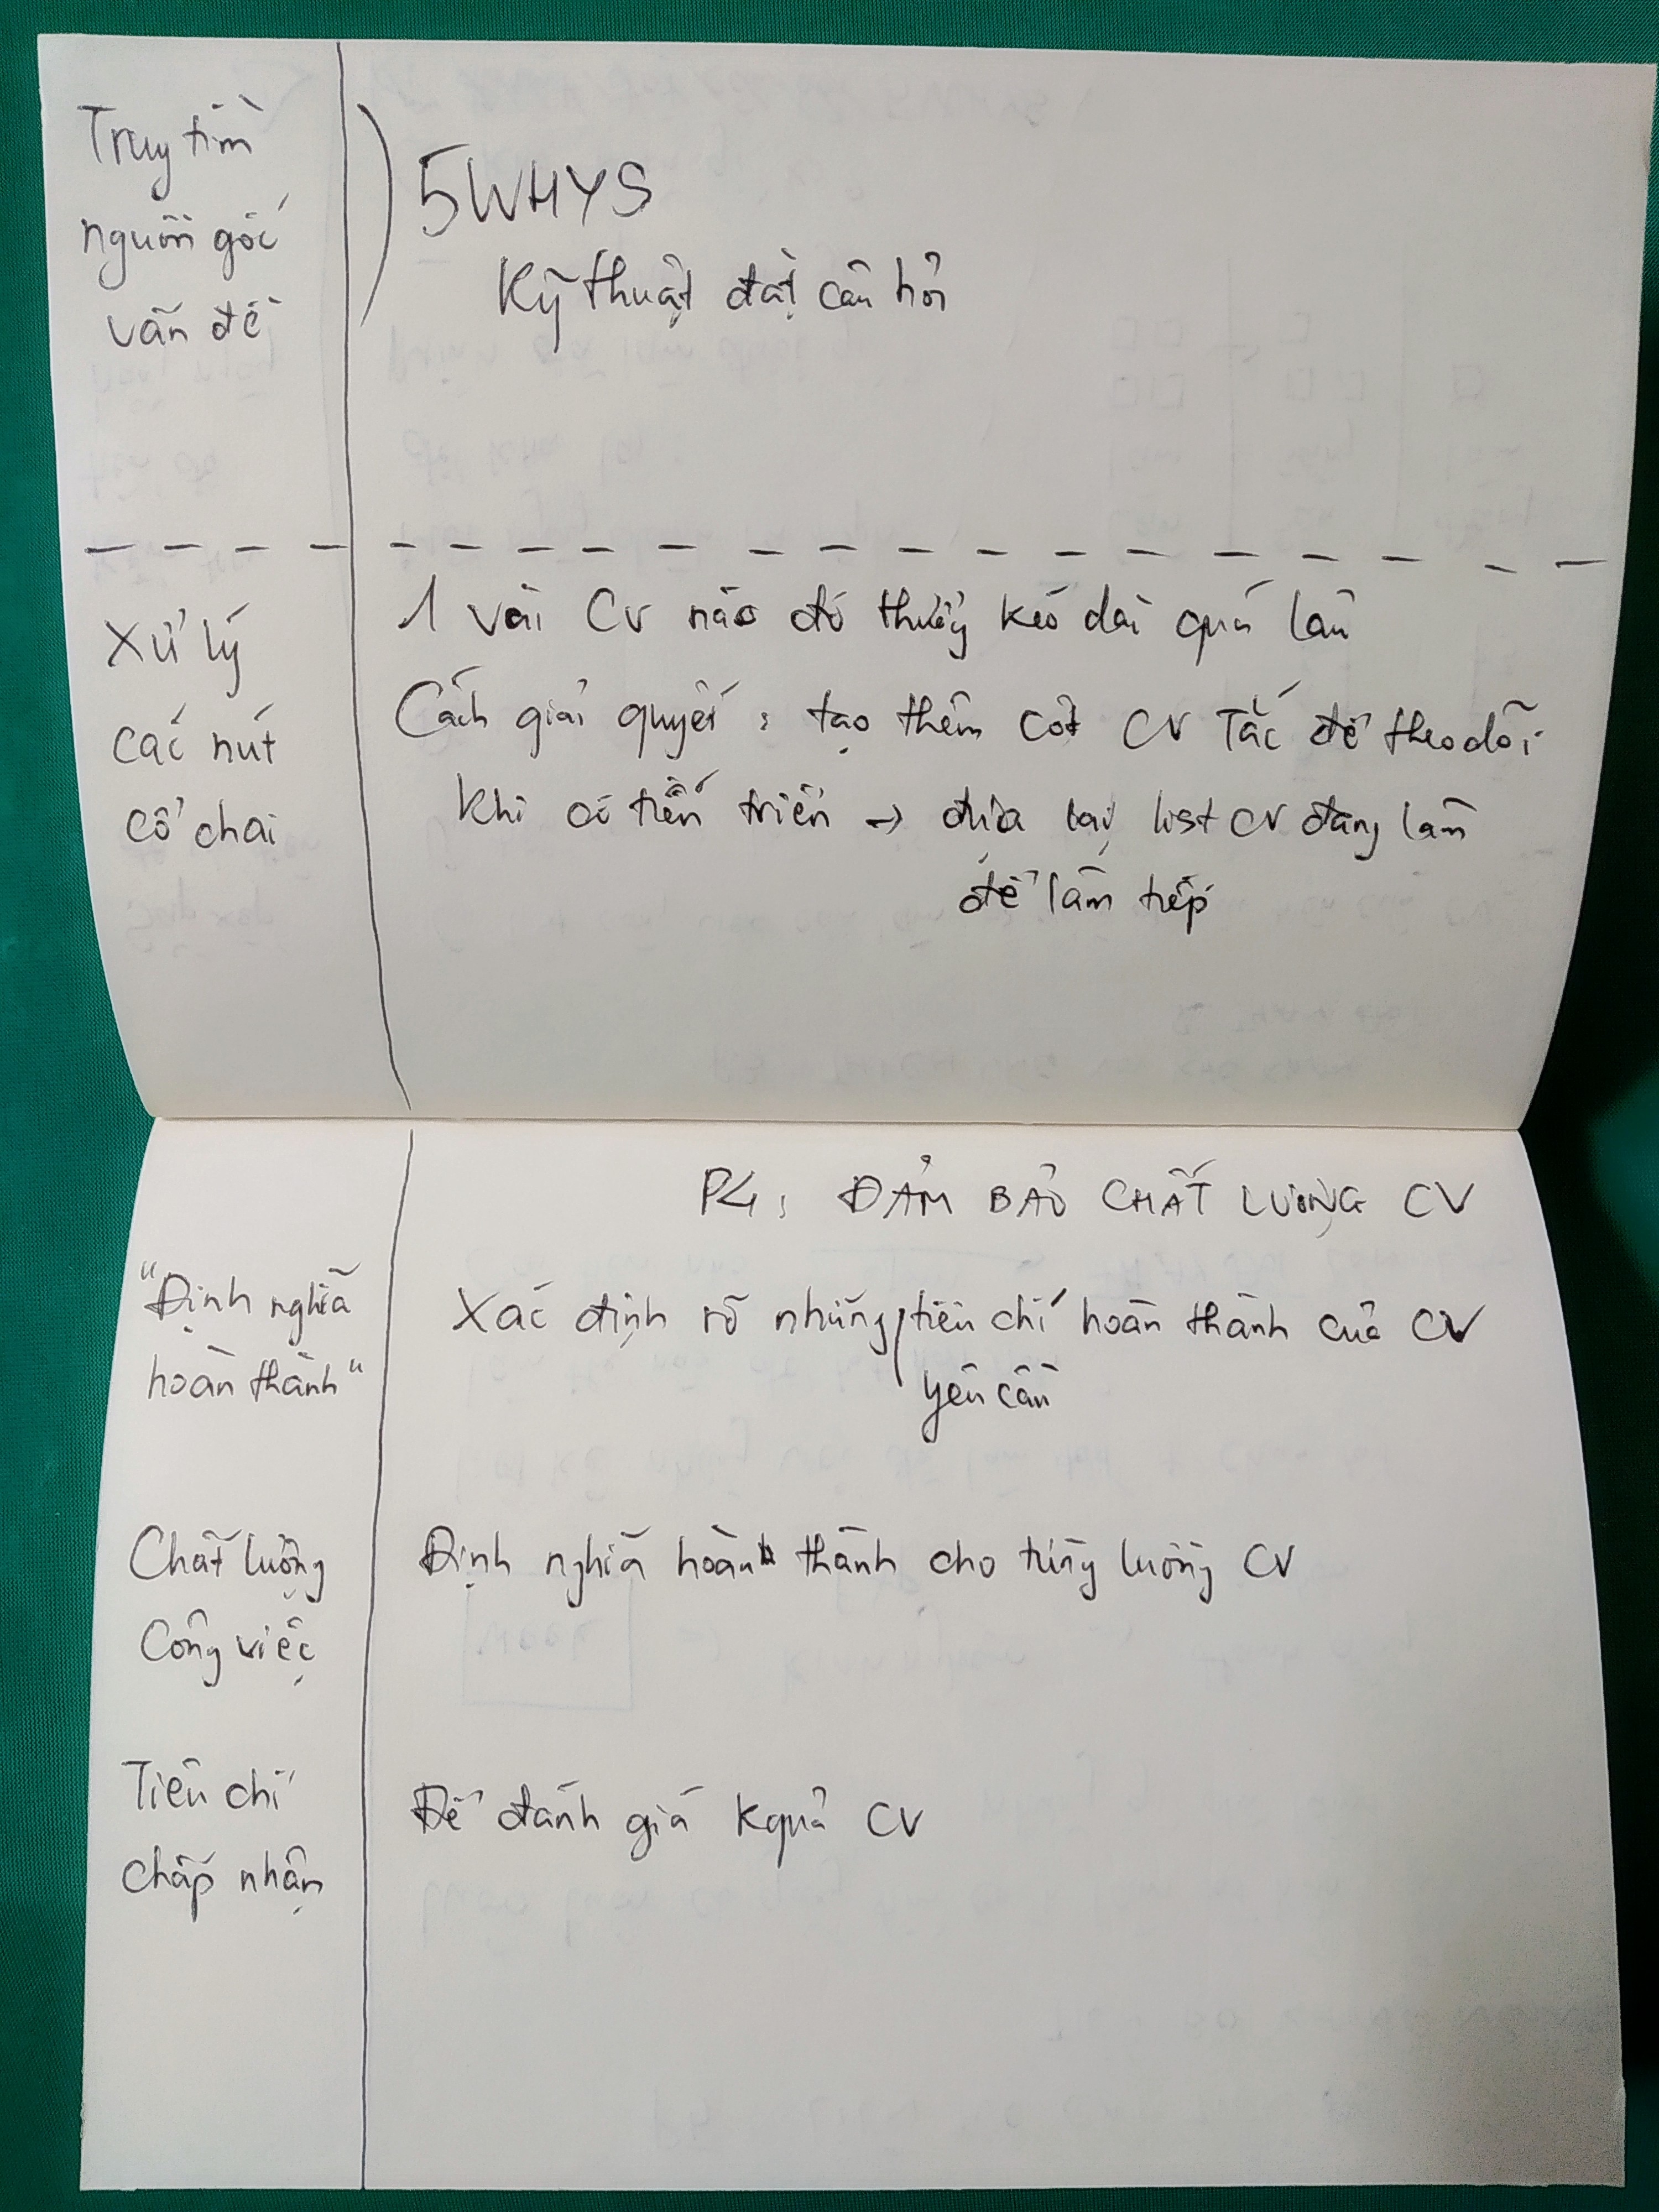 Truy tìm
nguồn gốc
vấn đề
5WHYS
Kỹ thuật đặt câu hỏi
Xử lý
các nút
cổ chai
1 vài CV nào đó thường kéo dài quá lâu
Cách giải quyết : tạo thêm cột CV Tắc để theo dõi
khi có tiến triển → đưa lại list CV đang làm
để làm tiếp
P4 : ĐẢM BẢO CHẤT LƯỢNG CV
"Định nghĩa
hoàn thành"
Xác định rõ những tiêu chí hoàn thành của CV
yêu cầu
Chất lượng
Công việc
Định nghĩa hoàn thành cho từng luồng CV
Tiêu chí
chấp nhận
Để đánh giá kquả CV